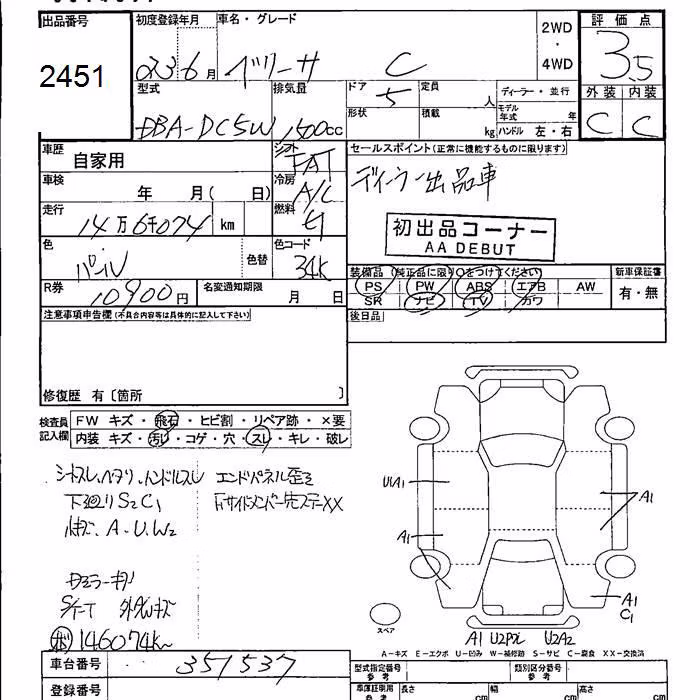 出品番号
2451
初度登録年月
車名・グレード
H23 6月 ベリーサ C
2WD
・
4WD
評価点
3.5
外装 内装
C C
型式 排気量
DBA-DC5W 1500cc
ドア 5
定員 人
形状 積載 kg
ディーラー・並行
モデル年式 年
ハンドル 左・右
車歴 自家用
シフト FAT
車検 年 月( 日)
冷房 A/C
走行 14万6千074 km
燃料
色 パール 色替
色コード 34K
R券 10900円
名変通知期限 月 日
セールスポイント(正常に機能するものに限ります)
ディーラー出品車
初出品コーナー
AA DEBUT
装備品(純正品に限り○をつけてください)
新車保証書
PS PW ABS エアB AW
SR ナビ TV カワ
有・無
後日品
注意事項申告欄(不具合内容等は具体的に記入して下さい)
修復歴 有〔箇所 〕
検査員記入欄
FW キズ・飛石・ヒビ割・リペア跡・×要
内装 キズ・汚れ・コゲ・穴・スレ・キレ・破レ
シートスレ、ヘタリ、ハンドルスレ
エンドパネル歪ミ
下廻りS2C1
小キズ、A・U、W2
146074K
UA1
A1
A1
A1
C1
A1 U2P2 U2A2
スペア
A-キズ E-エクボ U-凹み W-補修跡 S-サビ C-腐食 XX-交換済
車台番号 351537
登録番号
型式指定番号 参考
類別区分番号 参考
車庫証明用 参考
長さ cm
幅 cm
高さ cm